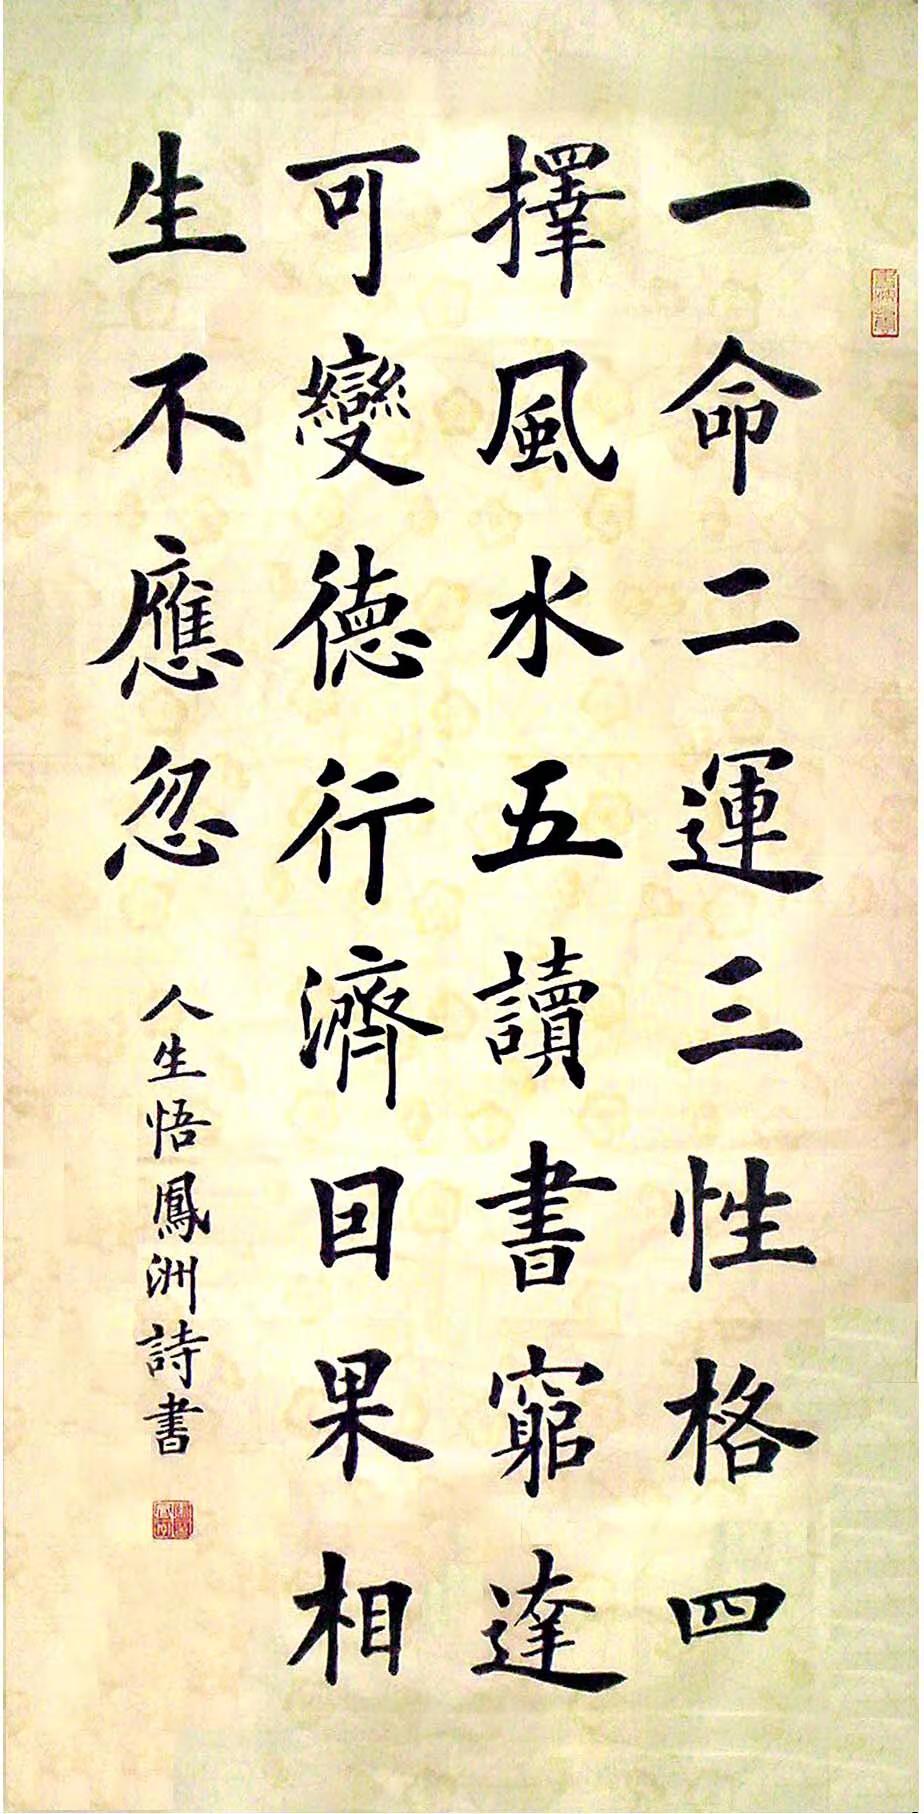 一命二運三性格四
擇風水五讀書窮達
可變德行濟囙果相
生不應忽
人生悟鳳洲詩書